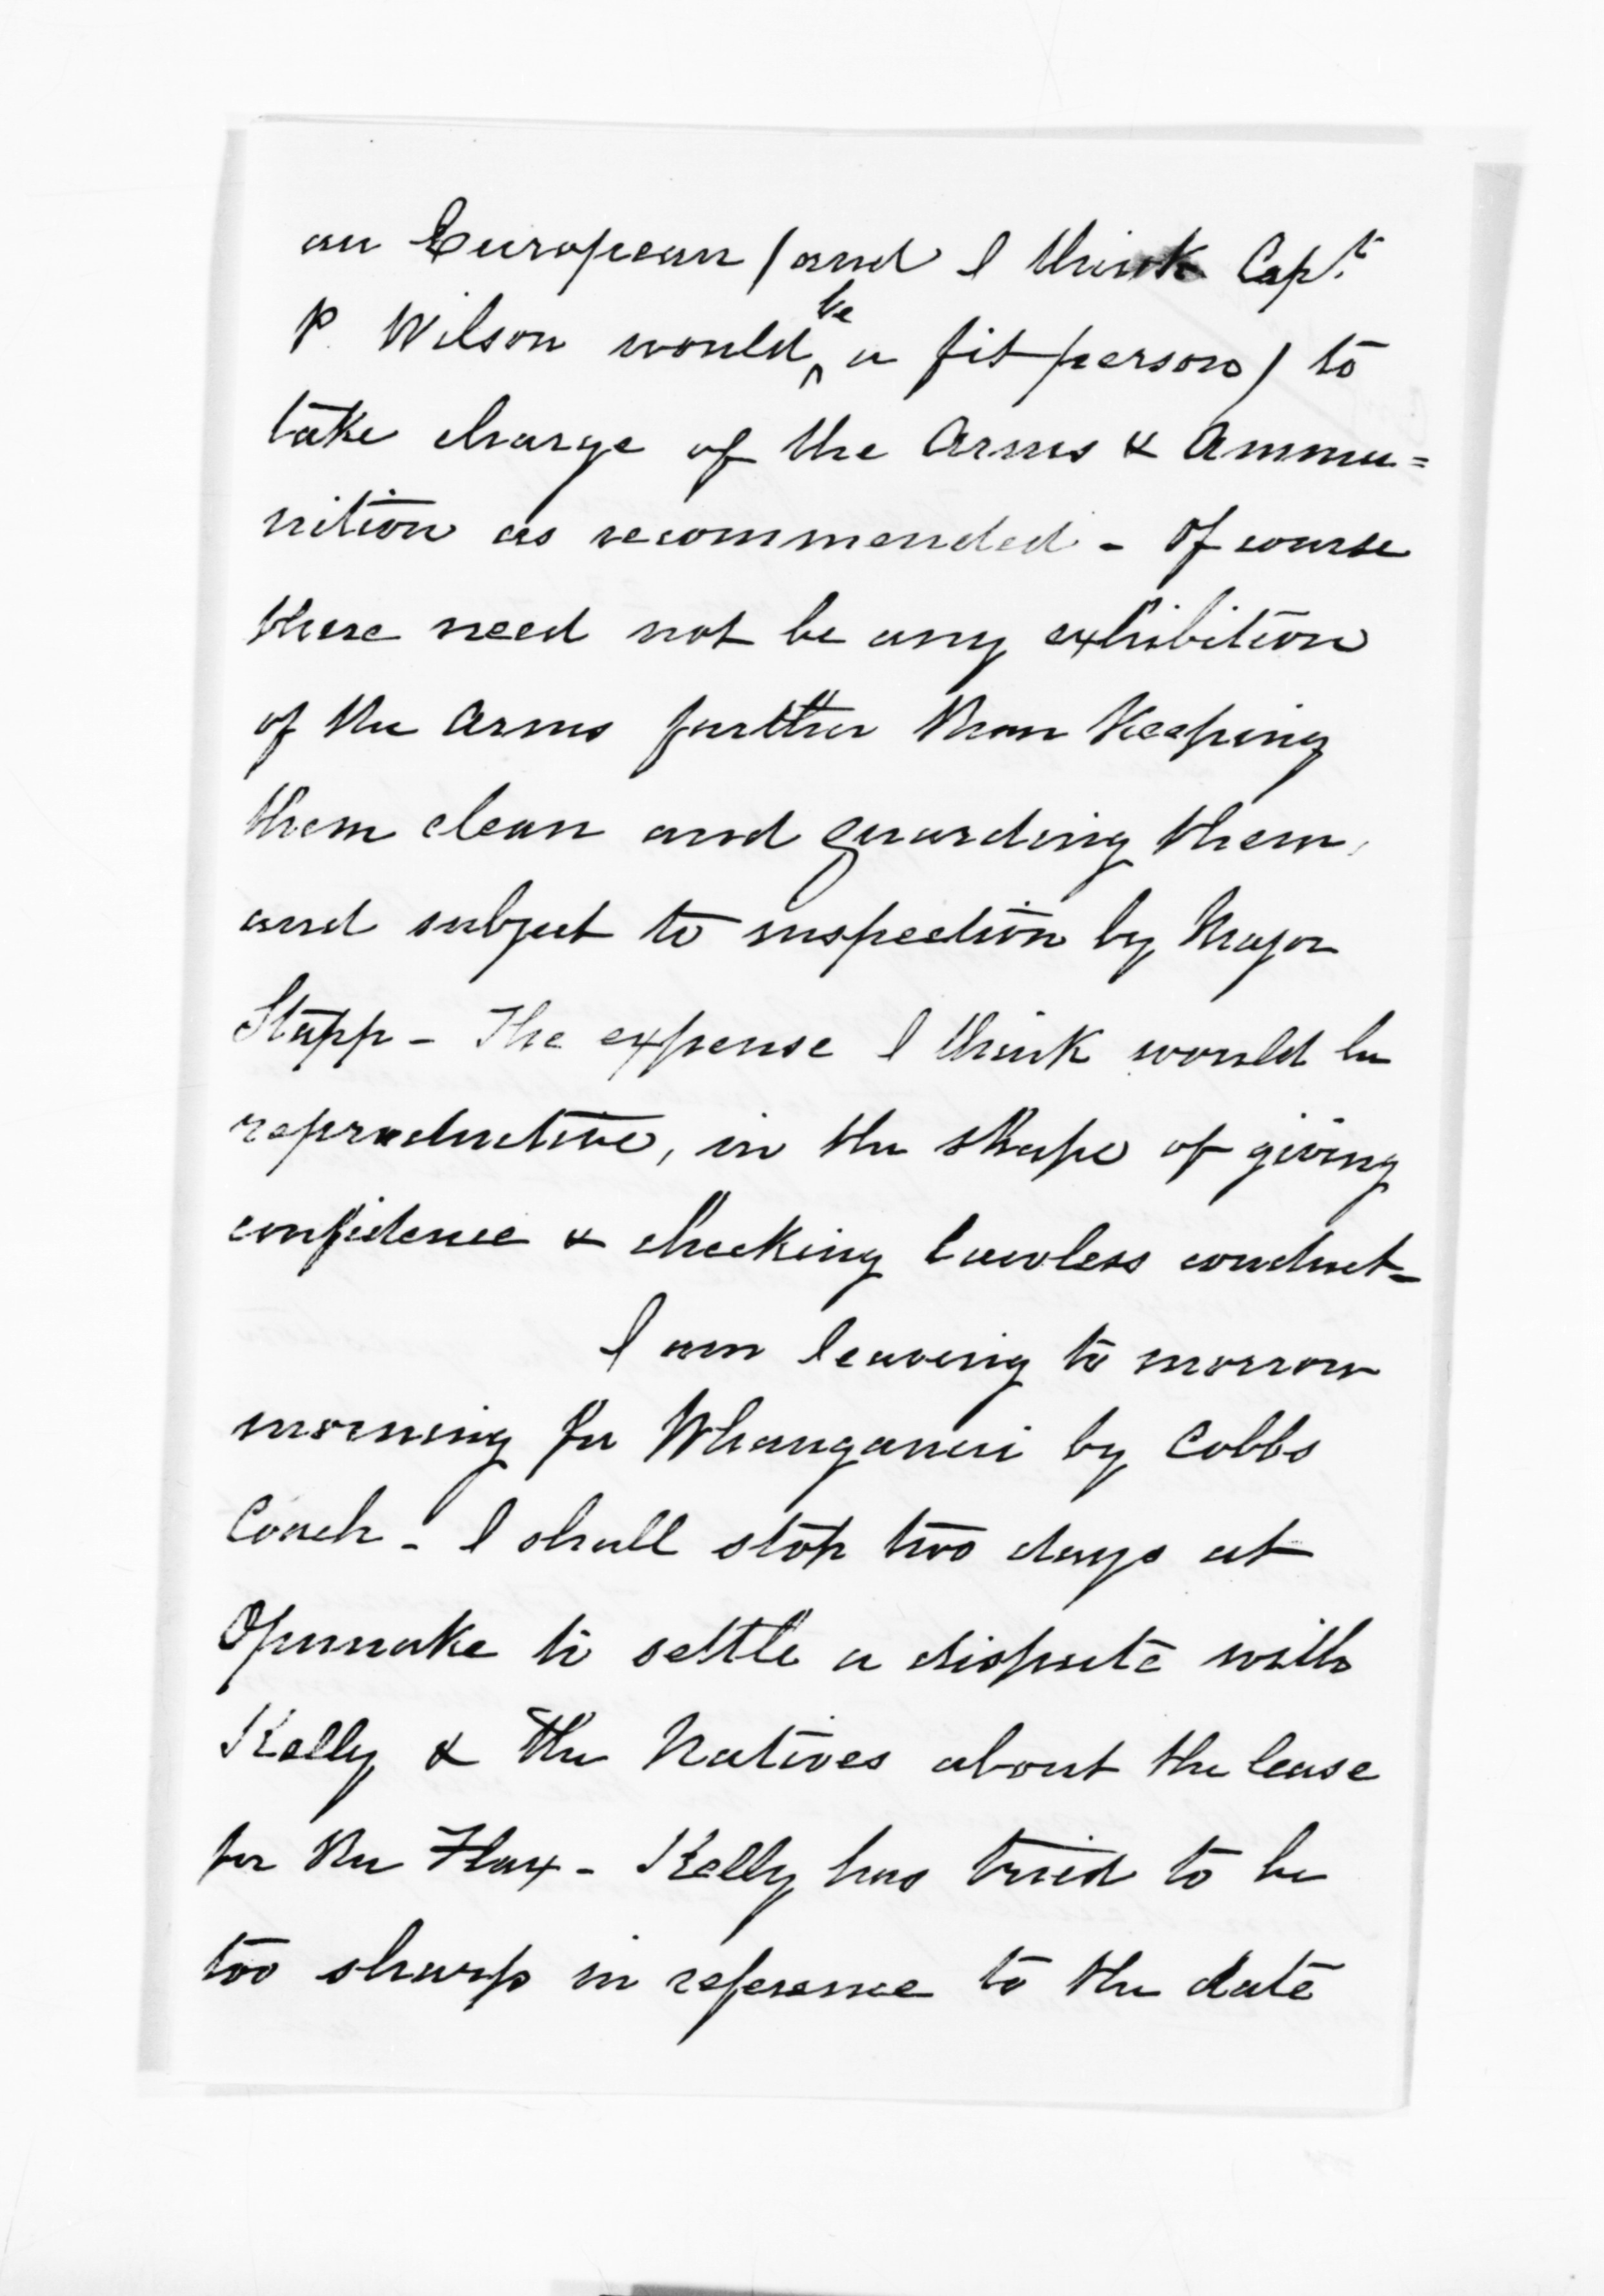 an European (and I think Capt.
P. Wilson would be a fit person) to
take charge of the Arms & Ammu=
nition as recommended - Of course
there need not be any exhibition
of the Arms further than keeping
them clean and guarding them,
and subject to inspection by Major
Stapp - The expense I think would be
reproductive, in the shape of giving
confidence & checking lawless conduct -
I am leaving to morrow
morning for Whanganui by Cobbs
Coach - I shall stop two days at
Opunake to settle a dispute with
Kelly & the Natives about the lease
for the Flax - Kelly has tried to be
too sharp in reference to the date